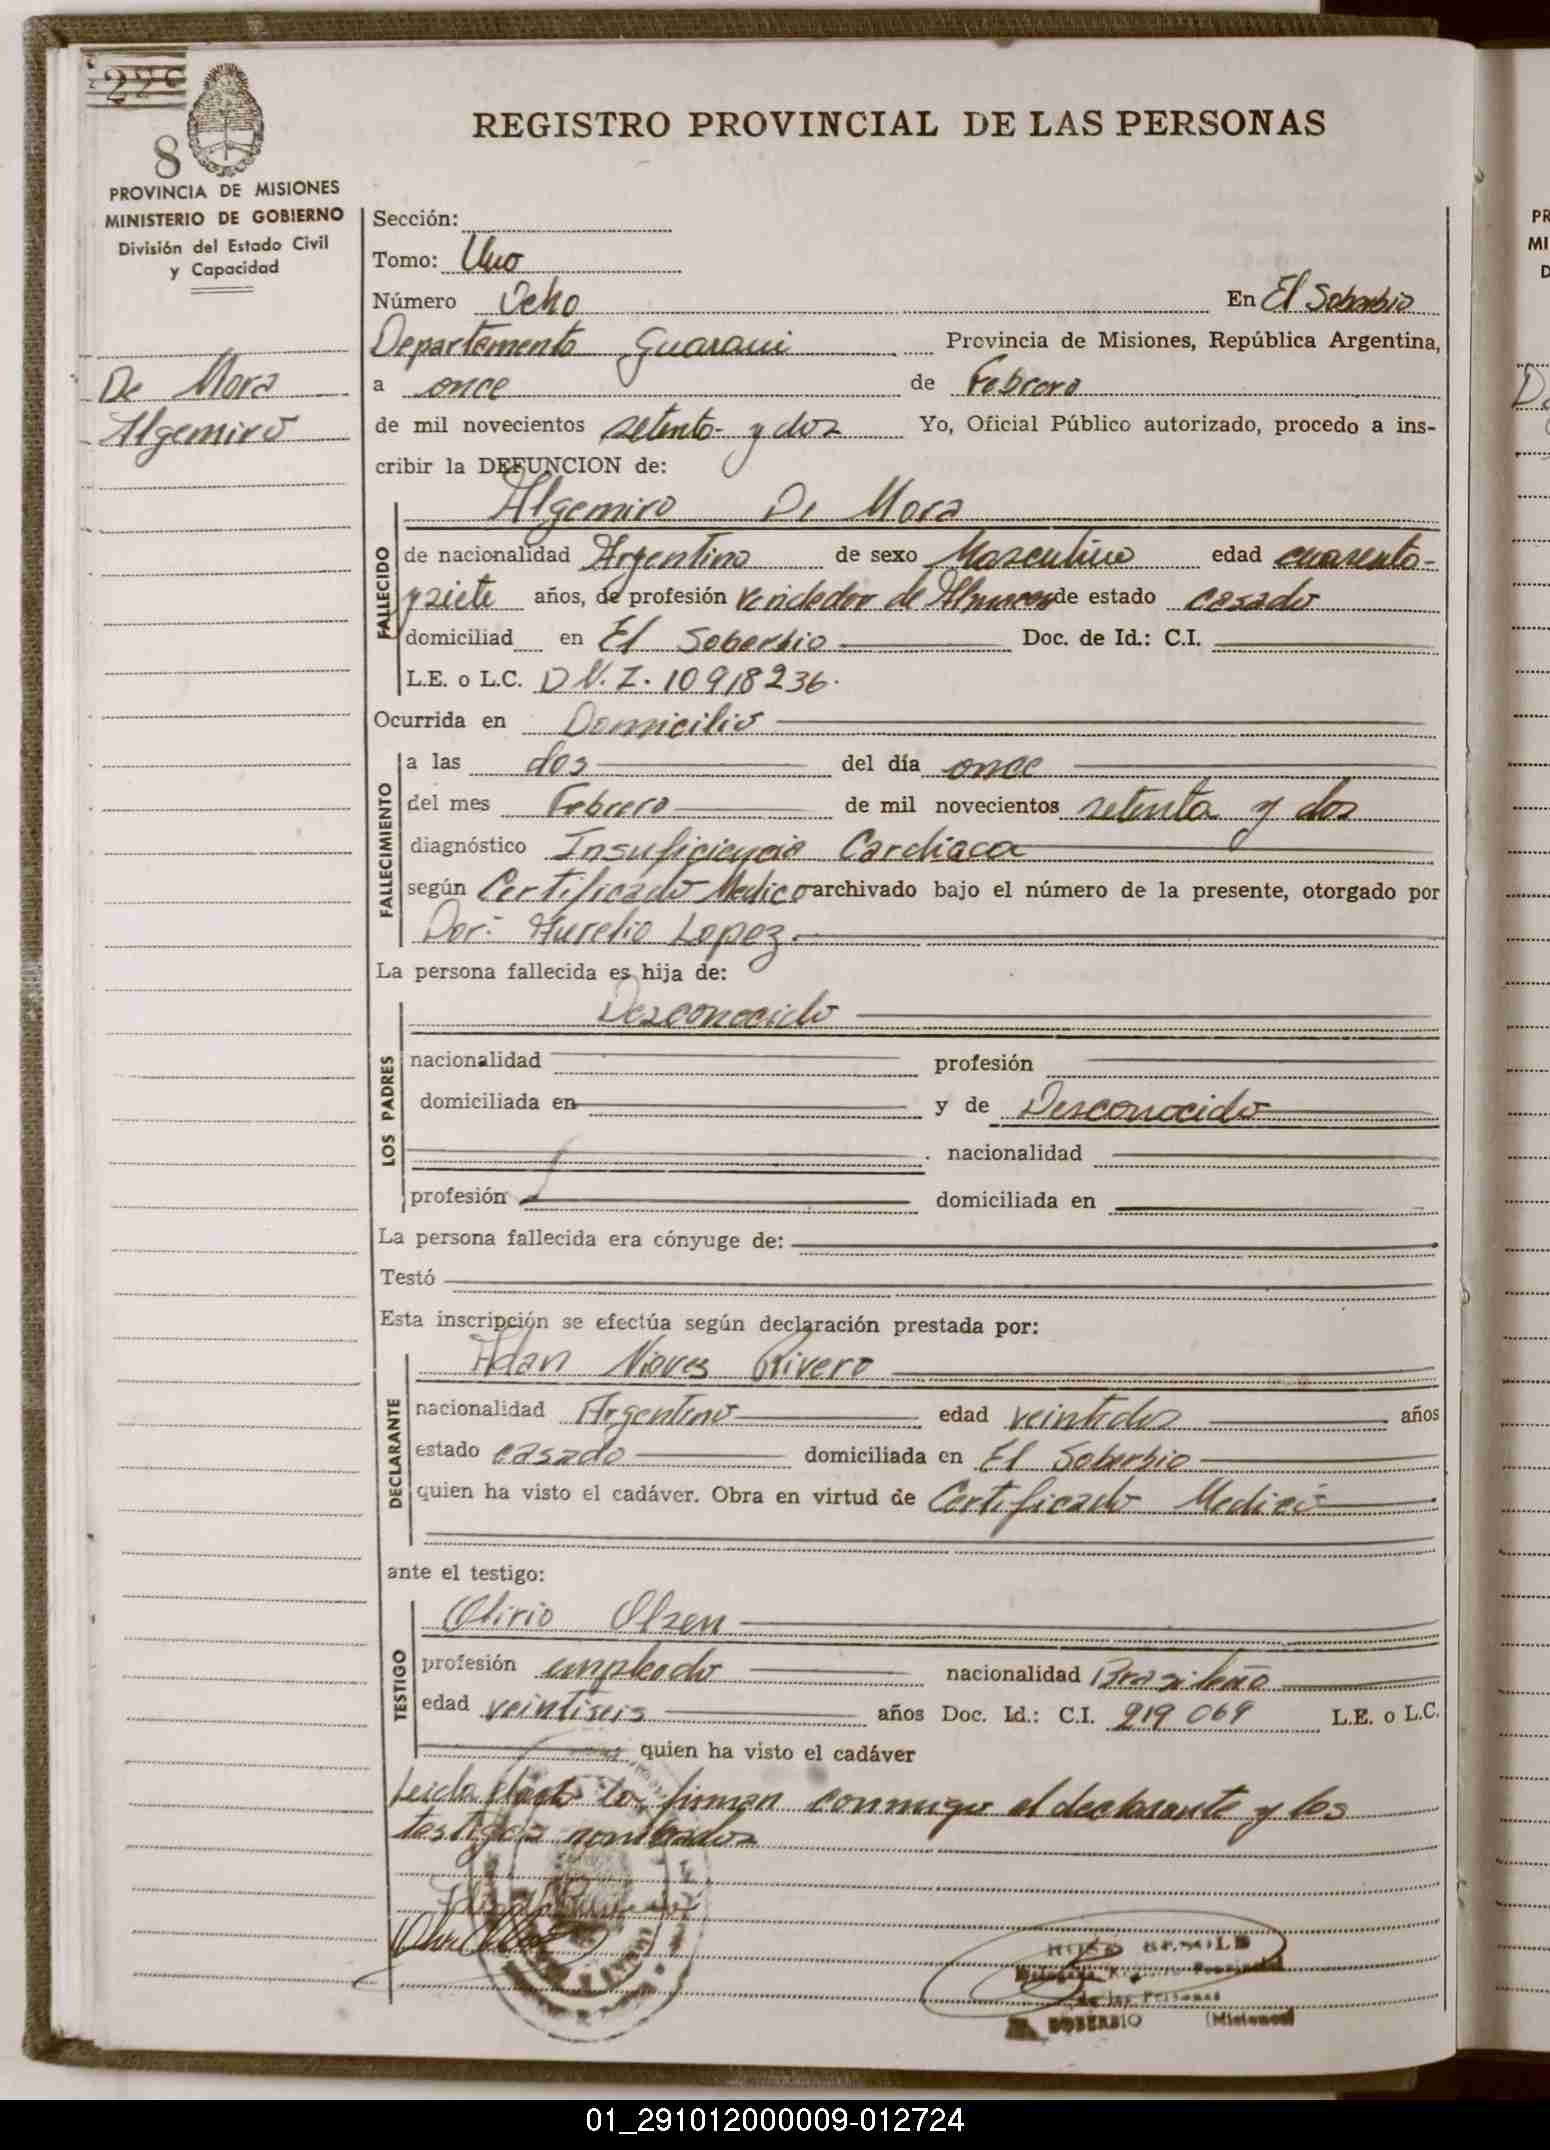 8
PROVINCIA DE MISIONES
MINISTERIO DE GOBIERNO
División del Estado Civil
y Capacidad
De Mora
Algemiro
REGISTRO PROVINCIAL DE LAS PERSONAS
Sección:
Tomo: Uno
Número Ocho En El Soberbio
Departamento Guarani Provincia de Misiones, República Argentina,
a once de Febrero
de mil novecientos setenta y dos Yo, Oficial Público autorizado, procedo a ins-
cribir la DEFUNCION de:
Algemiro De Mora
FALLECIDO
de nacionalidad Argentino de sexo Masculino edad cuarenta-
y siete años, de profesión vendedor de Almacen de estado casado
domiciliad en El Soberbio Doc. de Id.: C.I.
L.E. o L.C. D N. I. 10918236.
Ocurrida en Domicilio
FALLECIMIENTO
a las dos del día once
del mes Febrero de mil novecientos setenta y dos
diagnóstico Insuficiencia Cardiaca
según Certificado Medico archivado bajo el número de la presente, otorgado por
Dor: Aurelio Lopez.
La persona fallecida es hija de:
LOS PADRES
Desconocido
nacionalidad profesión
domiciliada en y de Desconocido
nacionalidad
profesión domiciliada en
La persona fallecida era cónyuge de:
Testó
Esta inscripción se efectúa según declaración prestada por:
DECLARANTE
Adan Nieves Rivero
nacionalidad Argentino edad veintidos años
estado casado domiciliada en El Soberbio
quien ha visto el cadáver. Obra en virtud de Certificado Medico
ante el testigo:
TESTIGO
Olirio Olsen
profesión empleado nacionalidad Brasileña
edad veintiseis años Doc. Id.: C.I. 219 069 L.E. o L.C.
quien ha visto el cadáver
Leida el acta la firman conmigo el declarante y los
testigos nombrados
Delegada Registro Provincial
de las Personas
SOBERBIO (Misiones)
01_291012000009-012724